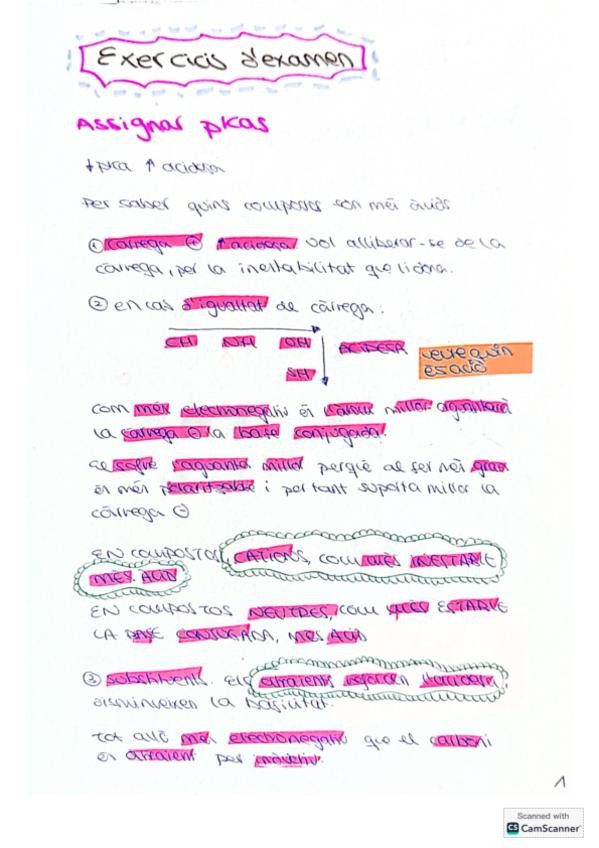 Exercicis d'examen
Assignar pkas
↓pka ↑ acidesa
Per saber quins compostos són més àcids
① Càrrega ⊕ ↑ acidesa vol alliberar-se de la
càrrega, per la inestabilitat que li dona.
② en cas d'igualtat de càrrega:
CH NH OH ACIDESA veure quin
SH és àcid
com més electronegatiu és l'àtom millor aguantarà
la càrrega ⊖ la base conjugada.
el sofre l'aguanta millor perquè al ser més gran
és més polaritzable i per tant suporta millor la
càrrega ⊖
EN COMPOSTOS CATIONS, COM MÉS INESTABLE
MÉS ÀCID
EN COMPOSTOS NEUTRES, COM MÉS ESTABLE
LA BASE CONJUGADA, MÉS ÀCID
③ substituents. Els atraients reforcen l'acidesa,
disminueixen la basicitat.
tot allò més electronegatiu que el carboni
és atraient per inductiu.
1
Scanned with
CS CamScanner